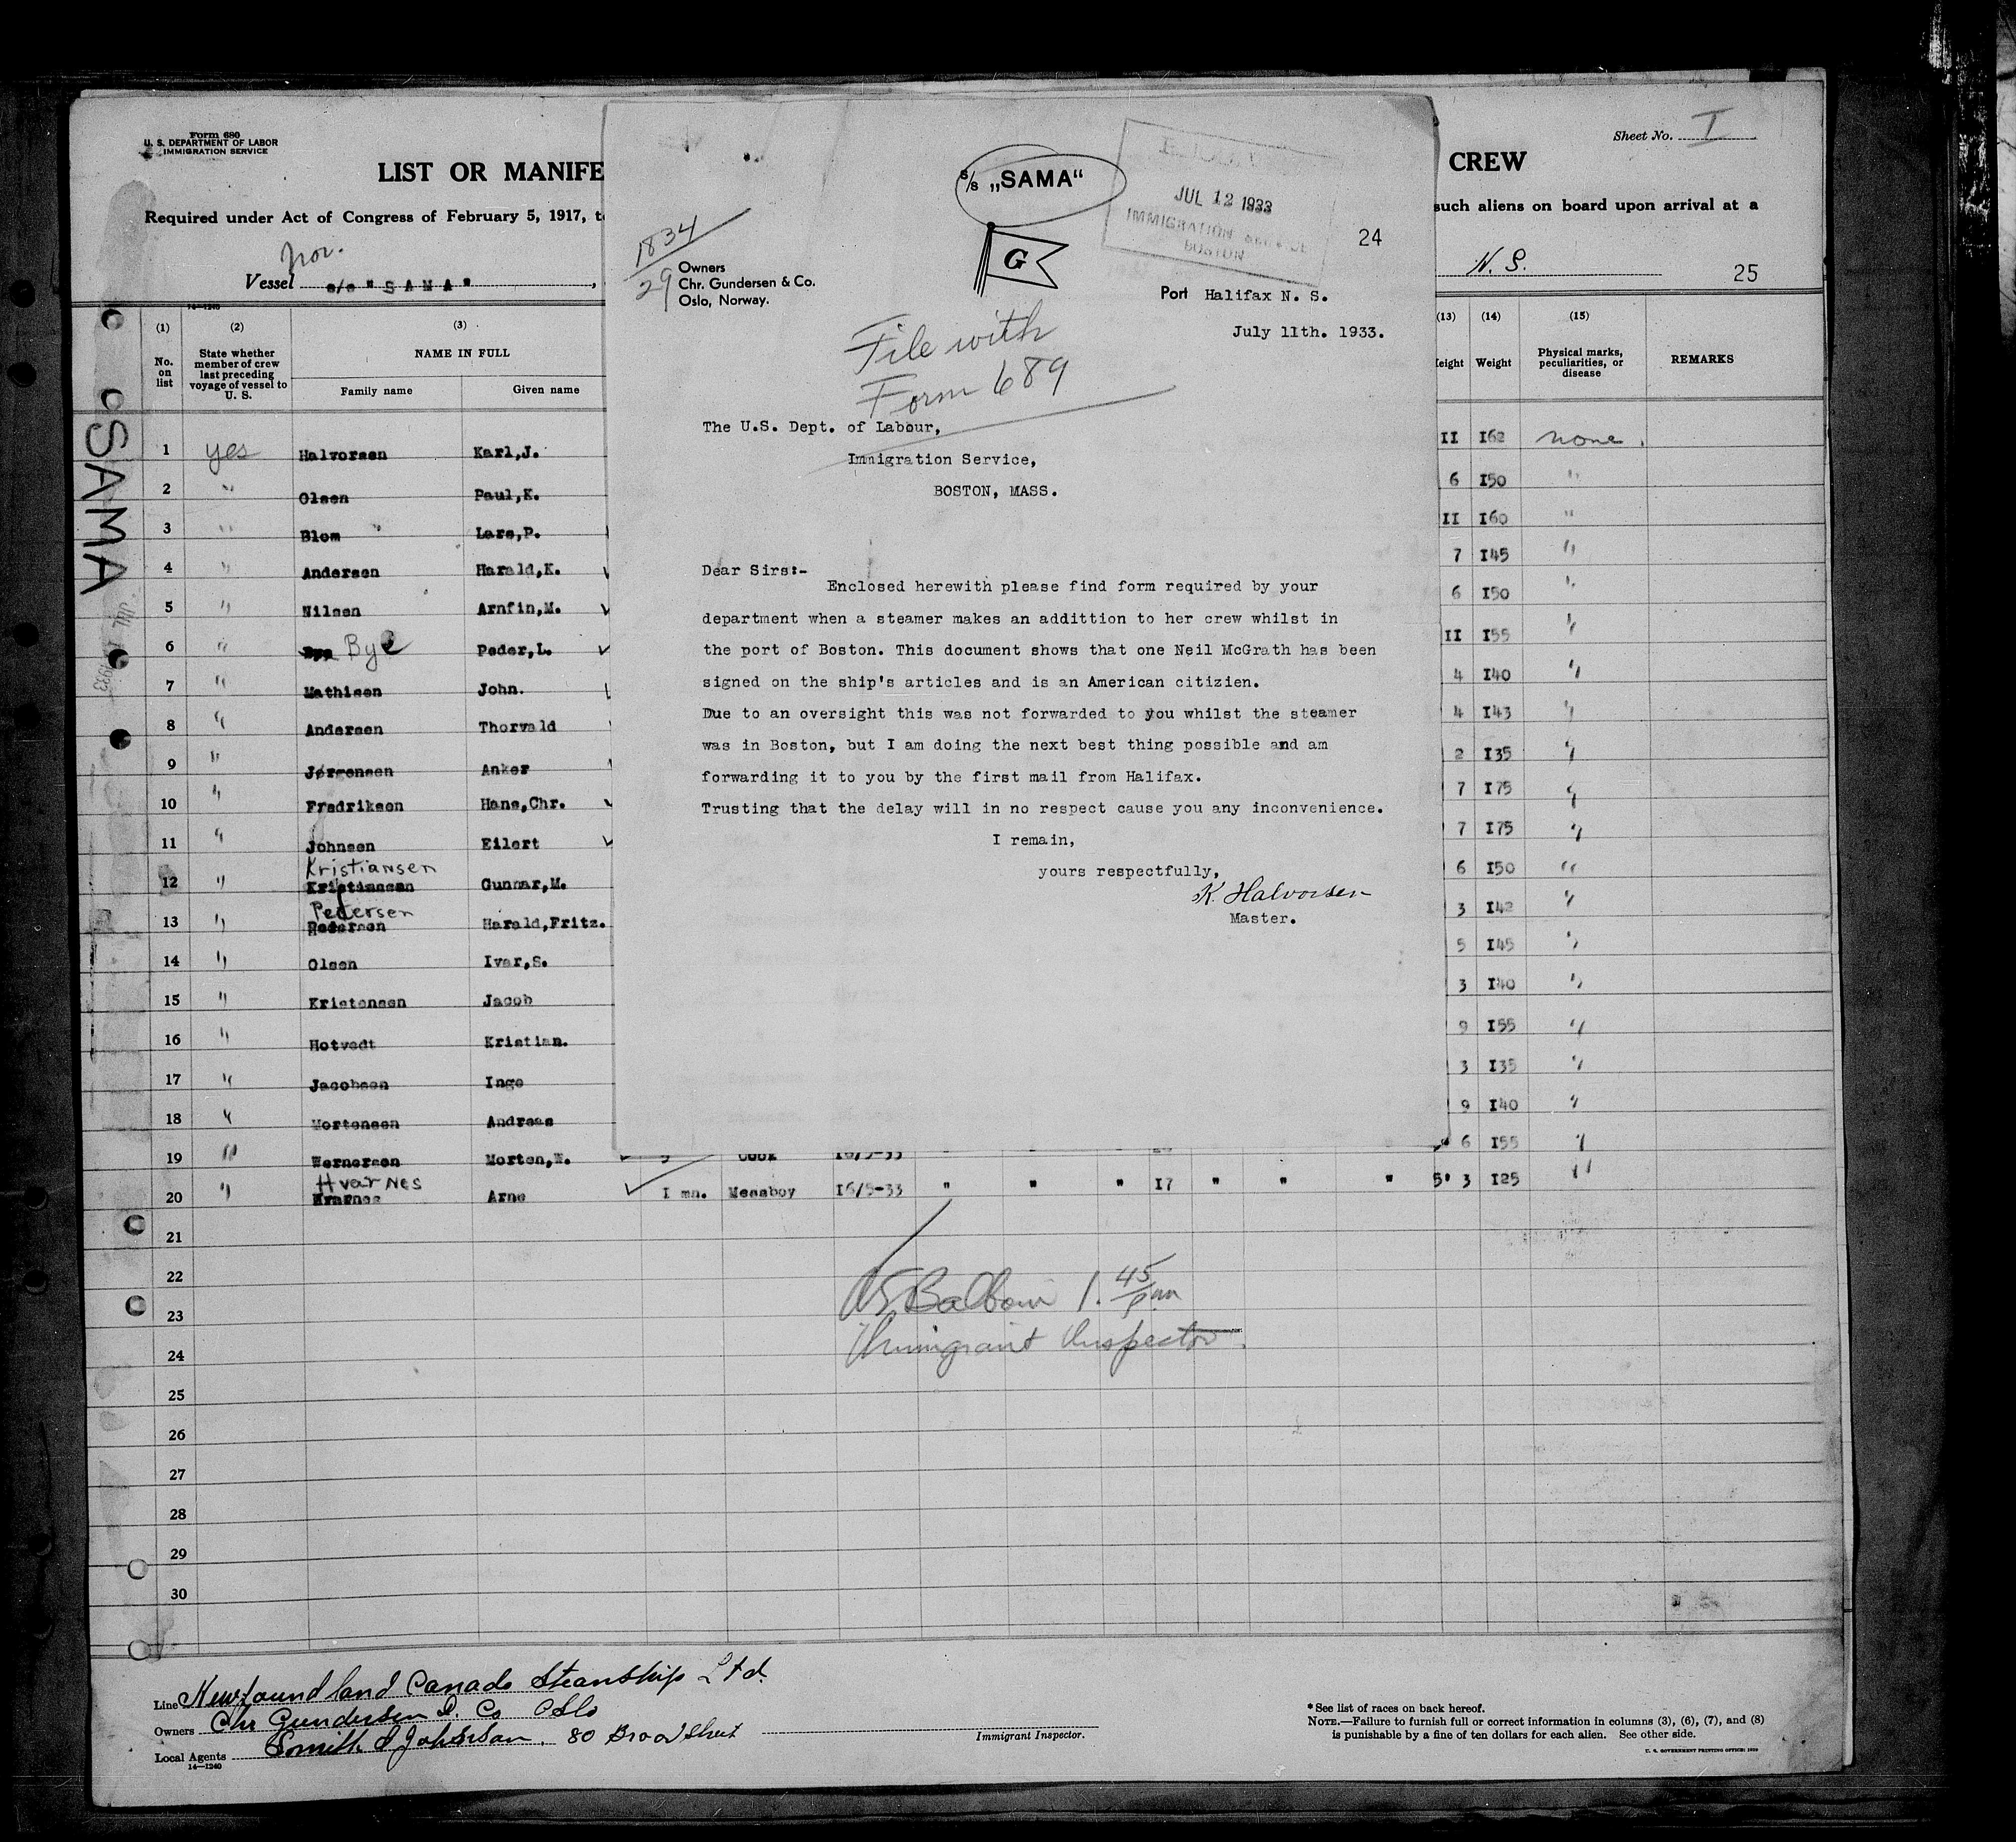 Form 680
U. S. DEPARTMENT OF LABOR
IMMIGRATION SERVICE
LIST OR MANIFE
CREW
Sheet No. I
Required under Act of Congress of February 5, 1917, t
such aliens on board upon arrival at a
Nor.
Vessel s/s "SAMA",
N. S.
25
SAMA
14—1240
(1) (2) (3) (13) (14) (15)
No. on list
State whether member of crew last preceding voyage of vessel to U. S.
NAME IN FULL
Family name Given name
eight Weight
Physical marks, peculiarities, or disease
REMARKS
1 yes Halvorsen Karl,J. II I62 none.
2 " Olsen Paul,K. 6 I50 "
3 " Blom " Lars,P. II I60 "
4 " Andersen Harald,K. 7 I45 "
5 " Nilsen Arnfin,M. 6 I50 "
6 " Bye Bye Peder,L. II I55 "
7 " Mathisen John. 4 I40 "
8 " Andersen Thorvald 4 I43 "
9 " Jørgensen Anker 2 I35 "
10 " Fredriksen Hans,Chr. 7 I75 "
11 " Johnsen Eilert 7 I75 "
Kristiansen
12 " Kristiansen Gunnar,M. 6 I50 "
Pedersen
13 " Pedersen Harald,Fritz. 3 I42 "
14 " Olsen Ivar,S. 5 I45 "
15 " Kristensen Jacob 3 I40 "
16 " Hotvedt Kristian. 9 I55 "
17 " Jacobsen Inge 3 I35 "
18 " Mortensen Andreas 9 I40 "
19 " Wernersen Morten,W. Cook I6/5-33 6 I55 "
Hvarnes
20 " Hvarnes Arne I mn. Messboy I6/5-33 " " " I7 " " " 5' 3 I25 "
21
22
23
24
25
26
27
28
29
30
Balbour 1.45 pm
Immigrant Inspector.
Line Newfoundland Canada Steamship Ltd.
Owners Chr Gundersen & Co Oslo
Local Agents Smith & Johnson, 80 Broad Street
14—1240
Immigrant Inspector.
* See list of races on back hereof.
NOTE.—Failure to furnish full or correct information in columns (3), (6), (7), and (8)
is punishable by a fine of ten dollars for each alien. See other side.
U. S. GOVERNMENT PRINTING OFFICE:
S/S „SAMA"
G
JUL 12 1933
IMMIGRATION SERVICE
BOSTON
24
1834
29
Owners
Chr. Gundersen & Co.
Oslo, Norway.
Port Halifax N. S.
July 11th. 1933.
File with
Form 689
The U.S. Dept. of Labour,
Immigration Service,
BOSTON, MASS.
Dear Sirs:-
Enclosed herewith please find form required by your
department when a steamer makes an addittion to her crew whilst in
the port of Boston. This document shows that one Neil McGrath has been
signed on the ship's articles and is an American citizien.
Due to an oversight this was not forwarded to you whilst the steamer
was in Boston, but I am doing the next best thing possible and am
forwarding it to you by the first mail from Halifax.
Trusting that the delay will in no respect cause you any inconvenience.
I remain,
yours respectfully,
K. Halvorsen
Master.